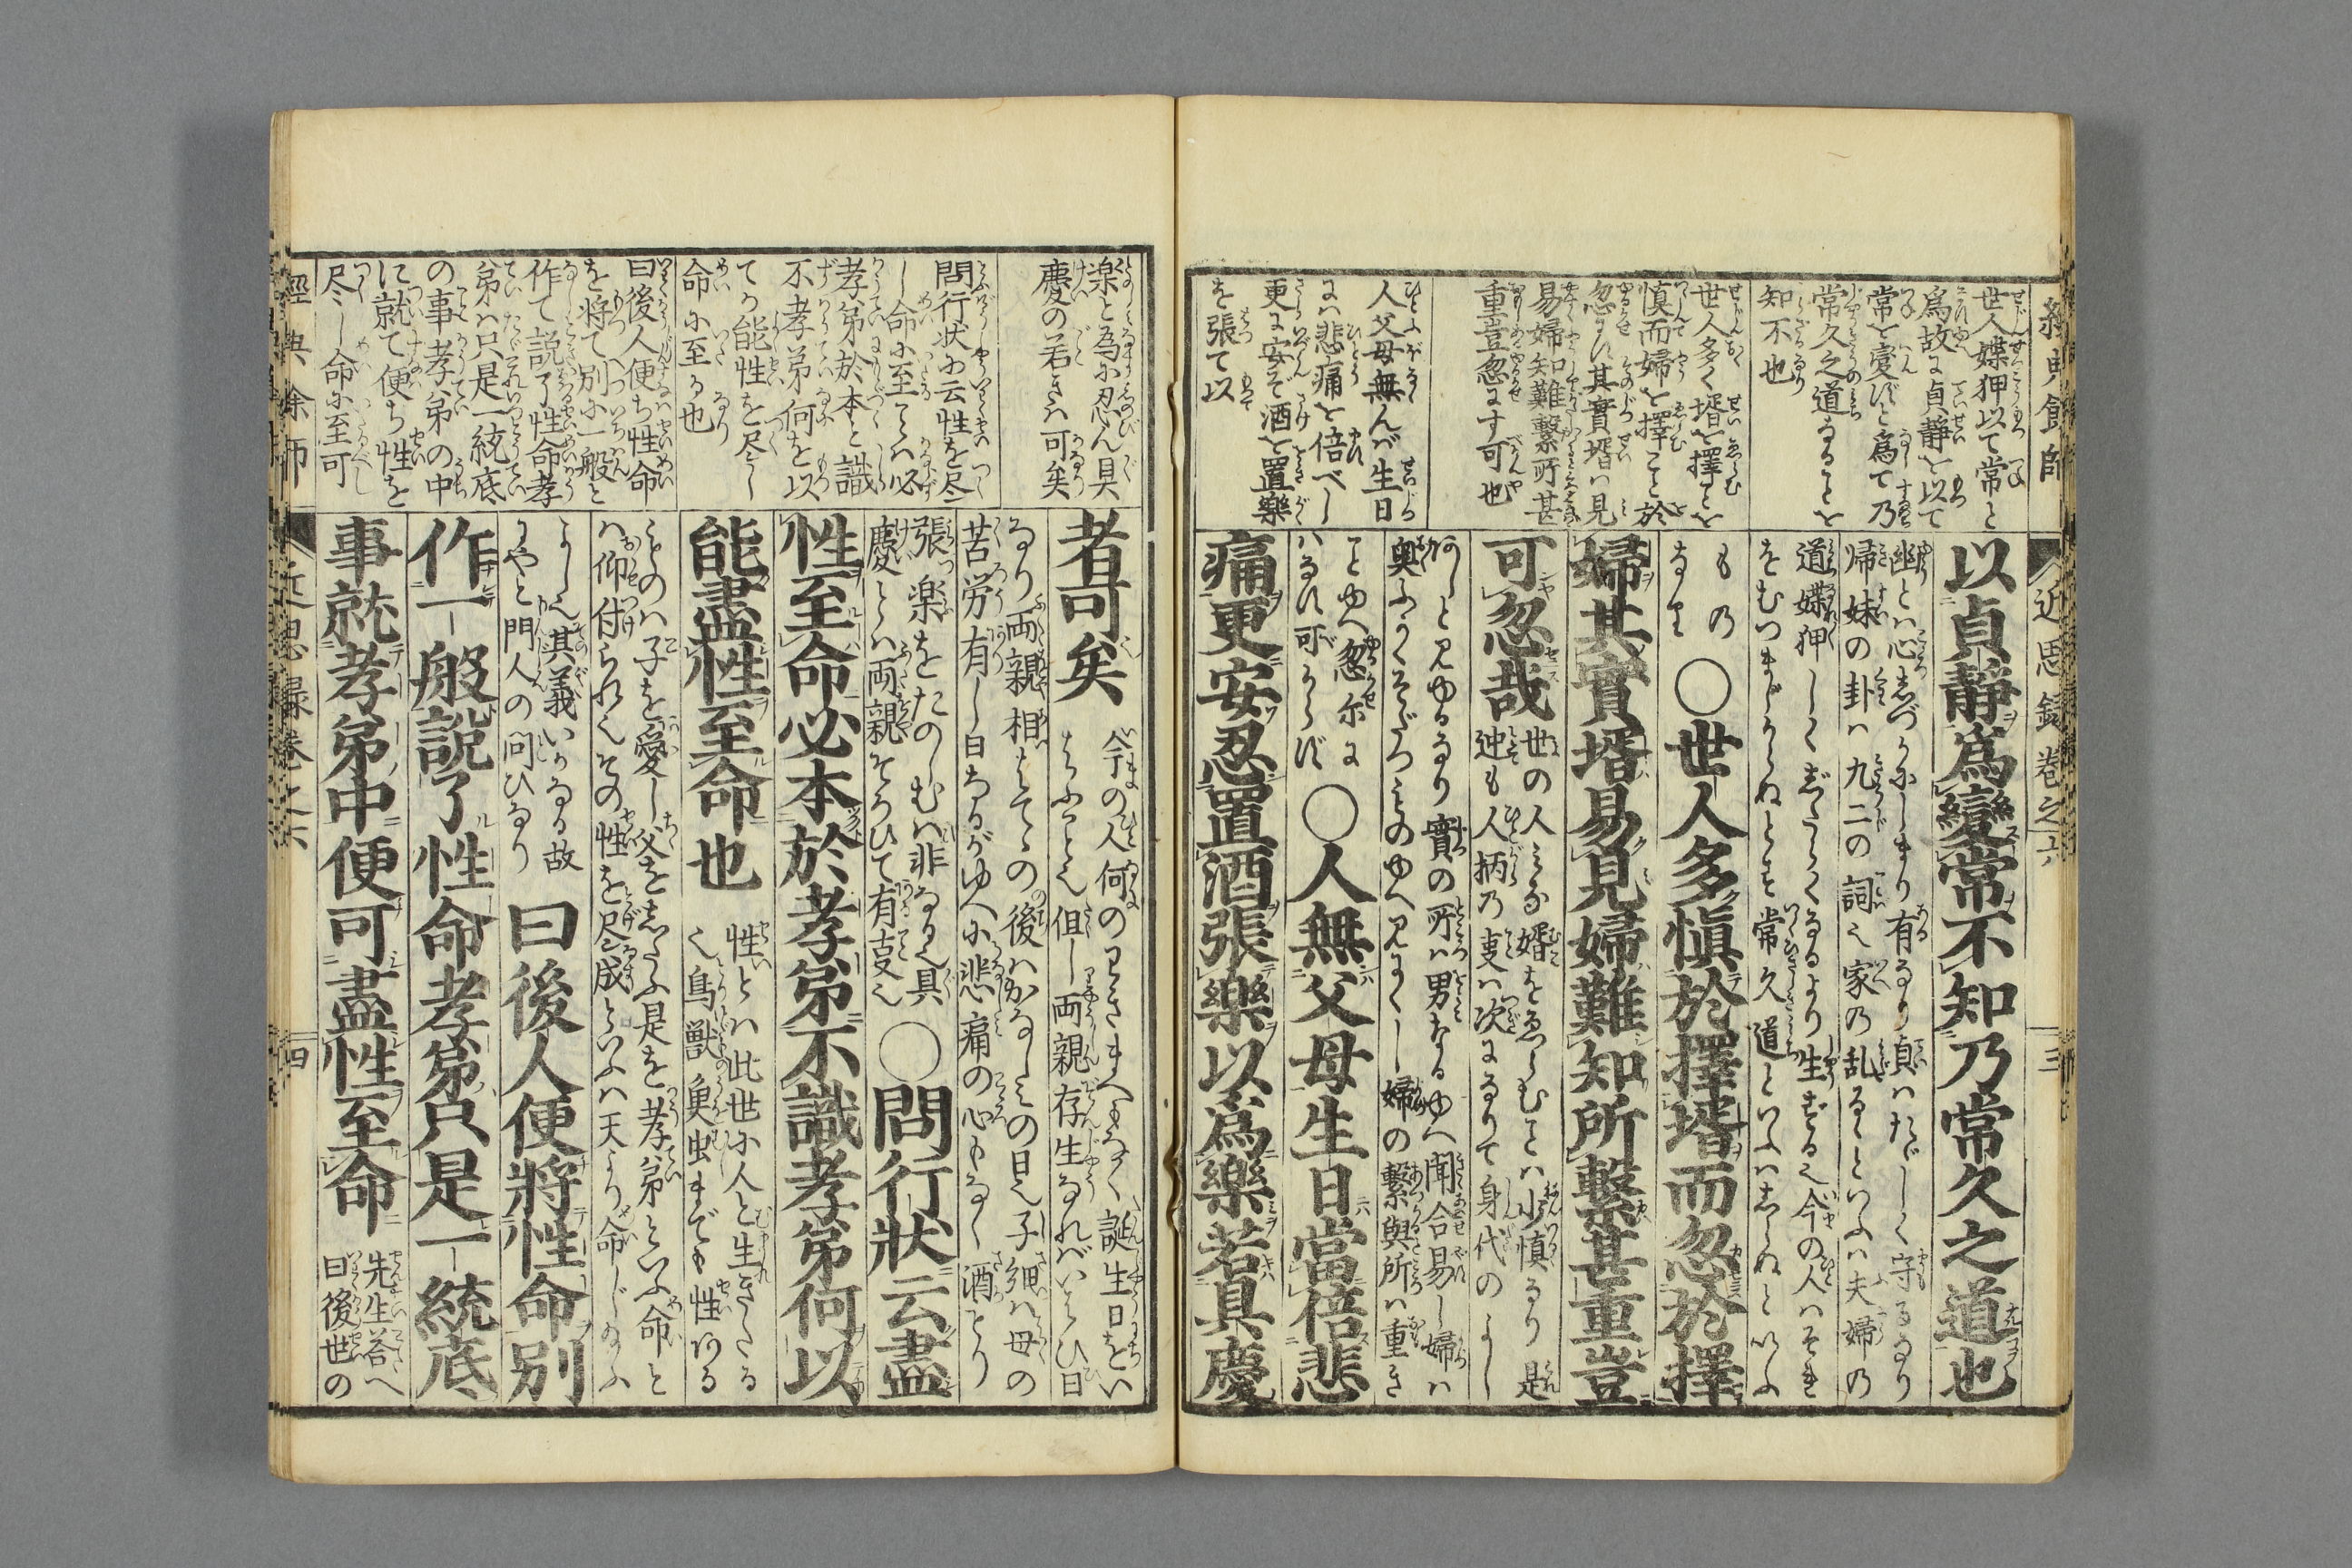 經典餘師
近思録卷之六
三
世人媟狎以て常と
爲故に貞静を以て
常を変ずと爲て乃
常久之道なることを
知不也
世人多く壻を擇ことを
慎而婦を擇ことを於
忽にす其實壻は見
易婦知難繋所甚
重豈忽にす可也
人父母無んば生日
には悲痛を倍べし
更に安ぞ酒を置樂
を張て以
以貞靜爲變常不知乃常久之道也
幽とは心しづかにしまり有なり貞はたゞしく守るなり
帰妹の卦は九二の詞也家の乱るといふは夫婦の
道媟狎しくざたらくなるより生ずる也今の人はそれ
をむつまじからぬとす常久道といふはしらぬといふ
もの
なり
○世人多愼於擇壻而忽於擇
婦其實壻易見婦難知所繋甚重豈
可忽哉
世の人みな婿をゑらむには少慎なり是
迚も人柄の叓は次になりて身代のよし
あしと見ゆるなり實の所は男なるゆへ聞合易し婦は
奥ふかくそだつものゆへ見にくし婦の繋與所は重き
ことゆへ忽尓に
はなれ可からず
○人無父母生日當倍悲
痛更安忍置酒張樂以爲樂若具慶
楽と為に忍ん具
慶の若きは可矣
問行状に云性を尽
し命に至ては必
孝弟於本と識
不孝弟何を以
てか能性を尽し
命に至る也
曰後人便ち性命
を将て別に一般と
作て説了性命孝
弟は只是一綂底
の事孝弟の中
に就て便ち性を
尽し命に至可
者可矣
今の人何のわきまへもなく誕生日をい
はふと也但し両親存生なればいはひ日
なり両親相はてゝの後はかなしみの日也子細は母の
苦労有し日なるがゆへに悲痛の心もなく酒もり
張楽をたのしむは非なり也具
慶とは両親そろひて有叓也
○問行狀云盡
性至命必本於孝弟不識孝弟何以
能盡性至命也
性とは此世に人と生きたる
く鳥獣魚虫までも性ある
ものは子を愛し父をしたふ是を孝弟といふ命と
は仰付られ也その性を尽成といふは天より命じ給ふ
よし也其義いかなる故
にやと門人の問ひなり
曰後人便將性命別
作一般說了性命孝弟只是一統底
事就孝弟中便可盡性至命
先生答へ
曰後世の
經典餘師
近思録卷之六
四